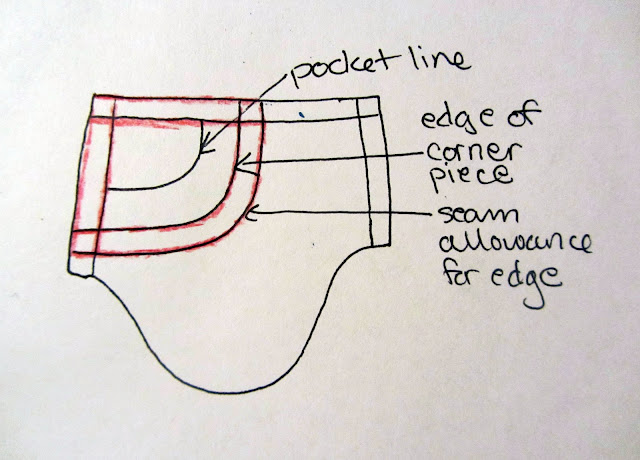 pocket line
edge of
corner
piece
seam
allowance
for edge